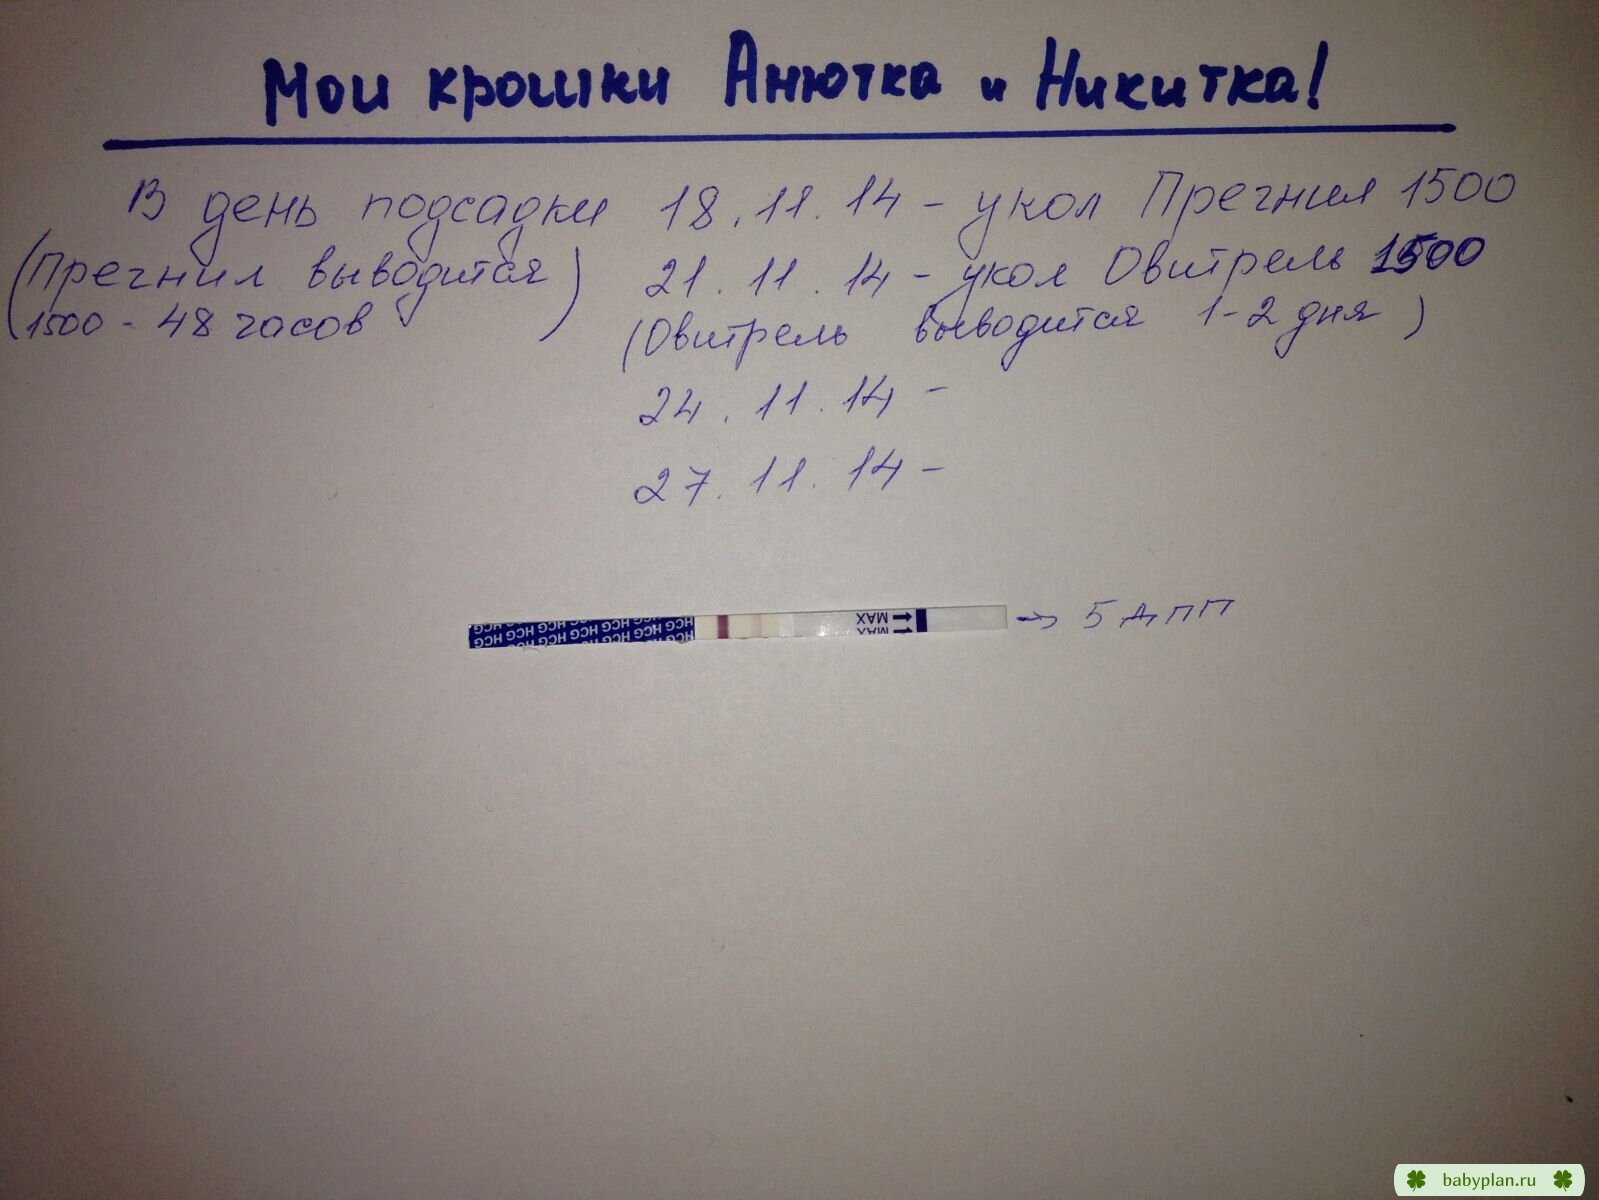 Мои крошки Анютка и Никитка!
В день подсадки 18.11.14 - укол Прегнил 1500
(Прегнил выводится
1500 - 48 часов)
21.11.14 - укол Овитрель 1500
(Овитрель выводится 1-2 дня)
24.11.14 -
27.11.14 -
HCG HCG HCG HCG HCG HCG HCG
HCG HCG HCG HCG HCG HCG HCG
MAX
MAX
→ 5 ДПП
babyplan.ru